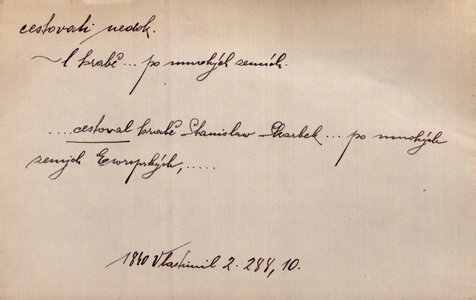 cestovati nedok.
~l hrabě ... po mnohých zemích.
.... cestoval hrabě Stanislaw Skarbek ... po mnohých
zemích Ewropských, .....
1840 Vlastimil 2. 288, 10.